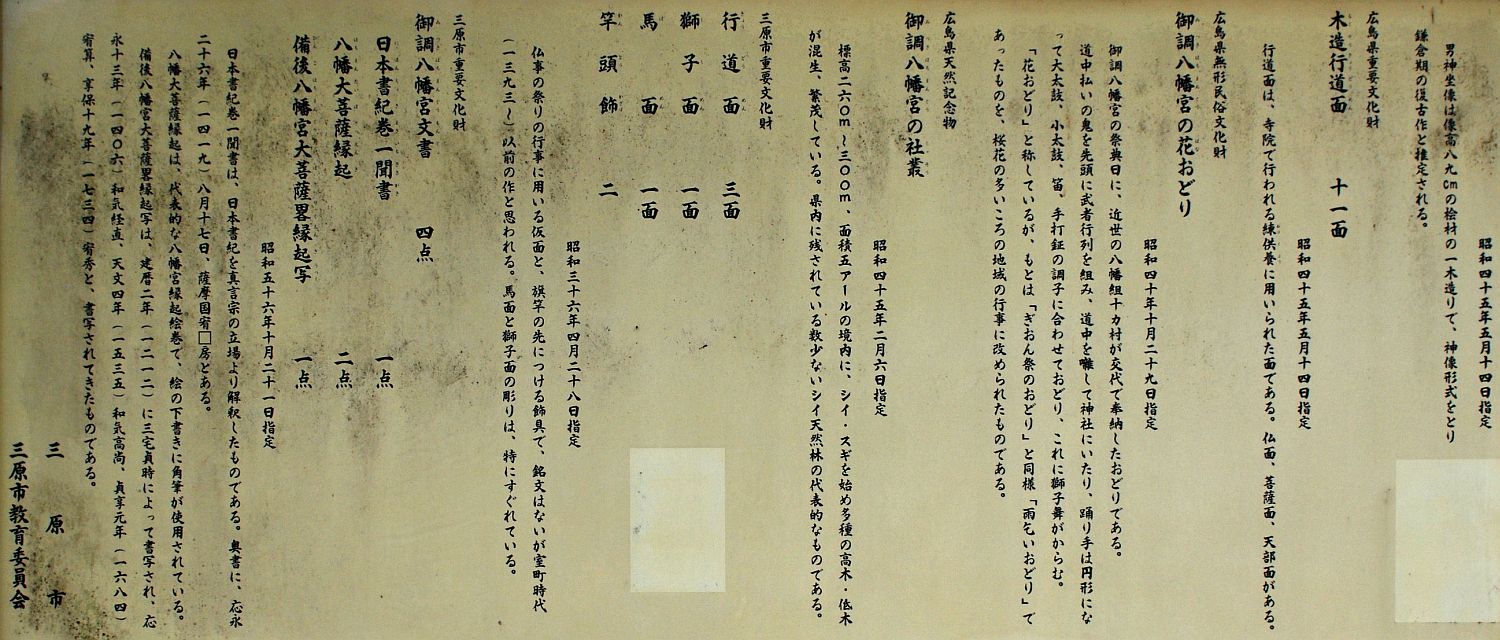 昭和四十五年五月十四日指定
男神坐像は像高八九cmの桧材の一木造りで、神像形式をとり
鎌倉期の復古作と推定される。
広島県重要文化財
木造行道面 十一面
昭和四十五年五月十四日指定
行道面は、寺院で行われる練供養に用いられた面である。仏面、菩薩面、天部面がある。
広島県無形民俗文化財
御調八幡宮の花おどり
昭和四十年十月二十九日指定
御調八幡宮の祭典日に、近世の八幡組十カ村が交代で奉納したおどりである。
道中払いの鬼を先頭に武者行列を組み、道中を囃して神社にいたり、踊り手は円形にな
って大太鼓、小太鼓、笛、手打鉦の調子に合わせておどり、これに獅子舞がからむ。
「花おどり」と称しているが、もとは「ぎおん祭のおどり」と同様「雨乞いおどり」で
あったものを、桜花の多いころの地域の行事に改められたものである。
広島県天然記念物
御調八幡宮の社叢
昭和四十五年二月六日指定
標高二六〇m～三〇〇m、面積五アールの境内に、シイ・スギを始め多種の高木・低木
が混生、繁茂している。県内に残されている数少ないシイ天然林の代表的なものである。
三原市重要文化財
行道面 三面
獅子面 一面
馬面 一面
竿頭飾 二
昭和三十六年四月二十八日指定
仏事の祭りの行事に用いる仮面と、旗竿の先につける飾具で、銘文はないが室町時代
（一三九三～）以前の作と思われる。馬面と獅子面の彫りは、特にすぐれている。
三原市重要文化財
御調八幡宮文書 四点
日本書紀巻一聞書 一点
八幡大菩薩縁起 二点
備後八幡宮大菩薩畧縁起写 一点
昭和五十六年十月二十一日指定
日本書紀巻一聞書は、日本書紀を真言宗の立場より解釈したものである。奥書に、応永
二十六年（一四一九）八月十七日、薩摩国宥□房とある。
八幡大菩薩縁起は、代表的な八幡宮縁起絵巻で、絵の下書きに角筆が使用されている。
備後八幡宮大菩薩畧縁起写は、建暦二年（一二一二）に三宅貞時によって書写され、応
永十三年（一四〇六）和気経直、天文四年（一五三五）和気高尚、貞享元年（一六八四）
宥算、享保十九年（一七三四）宥秀と、書写されてきたものである。
三原市
三原市教育委員会